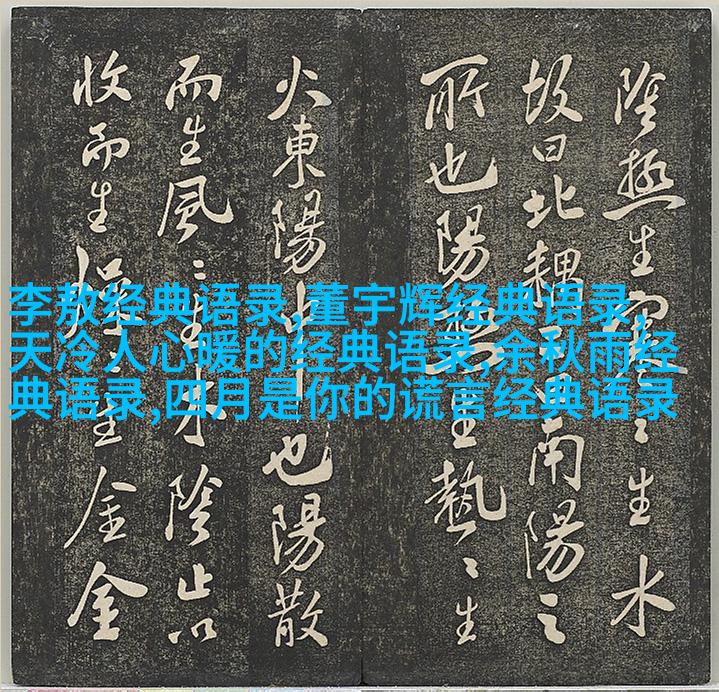 李敖经典语录,董宇辉经典语录,
天冷人心暖的经典语录,余秋雨经
典语录,四月是你的谎言经典语录
陰極生寒〻生水
故曰北耦南陽之
所也陽極生熱〻生
火東陽中也陽散
而生風〻生木陰止以
收而生燥〻生金金